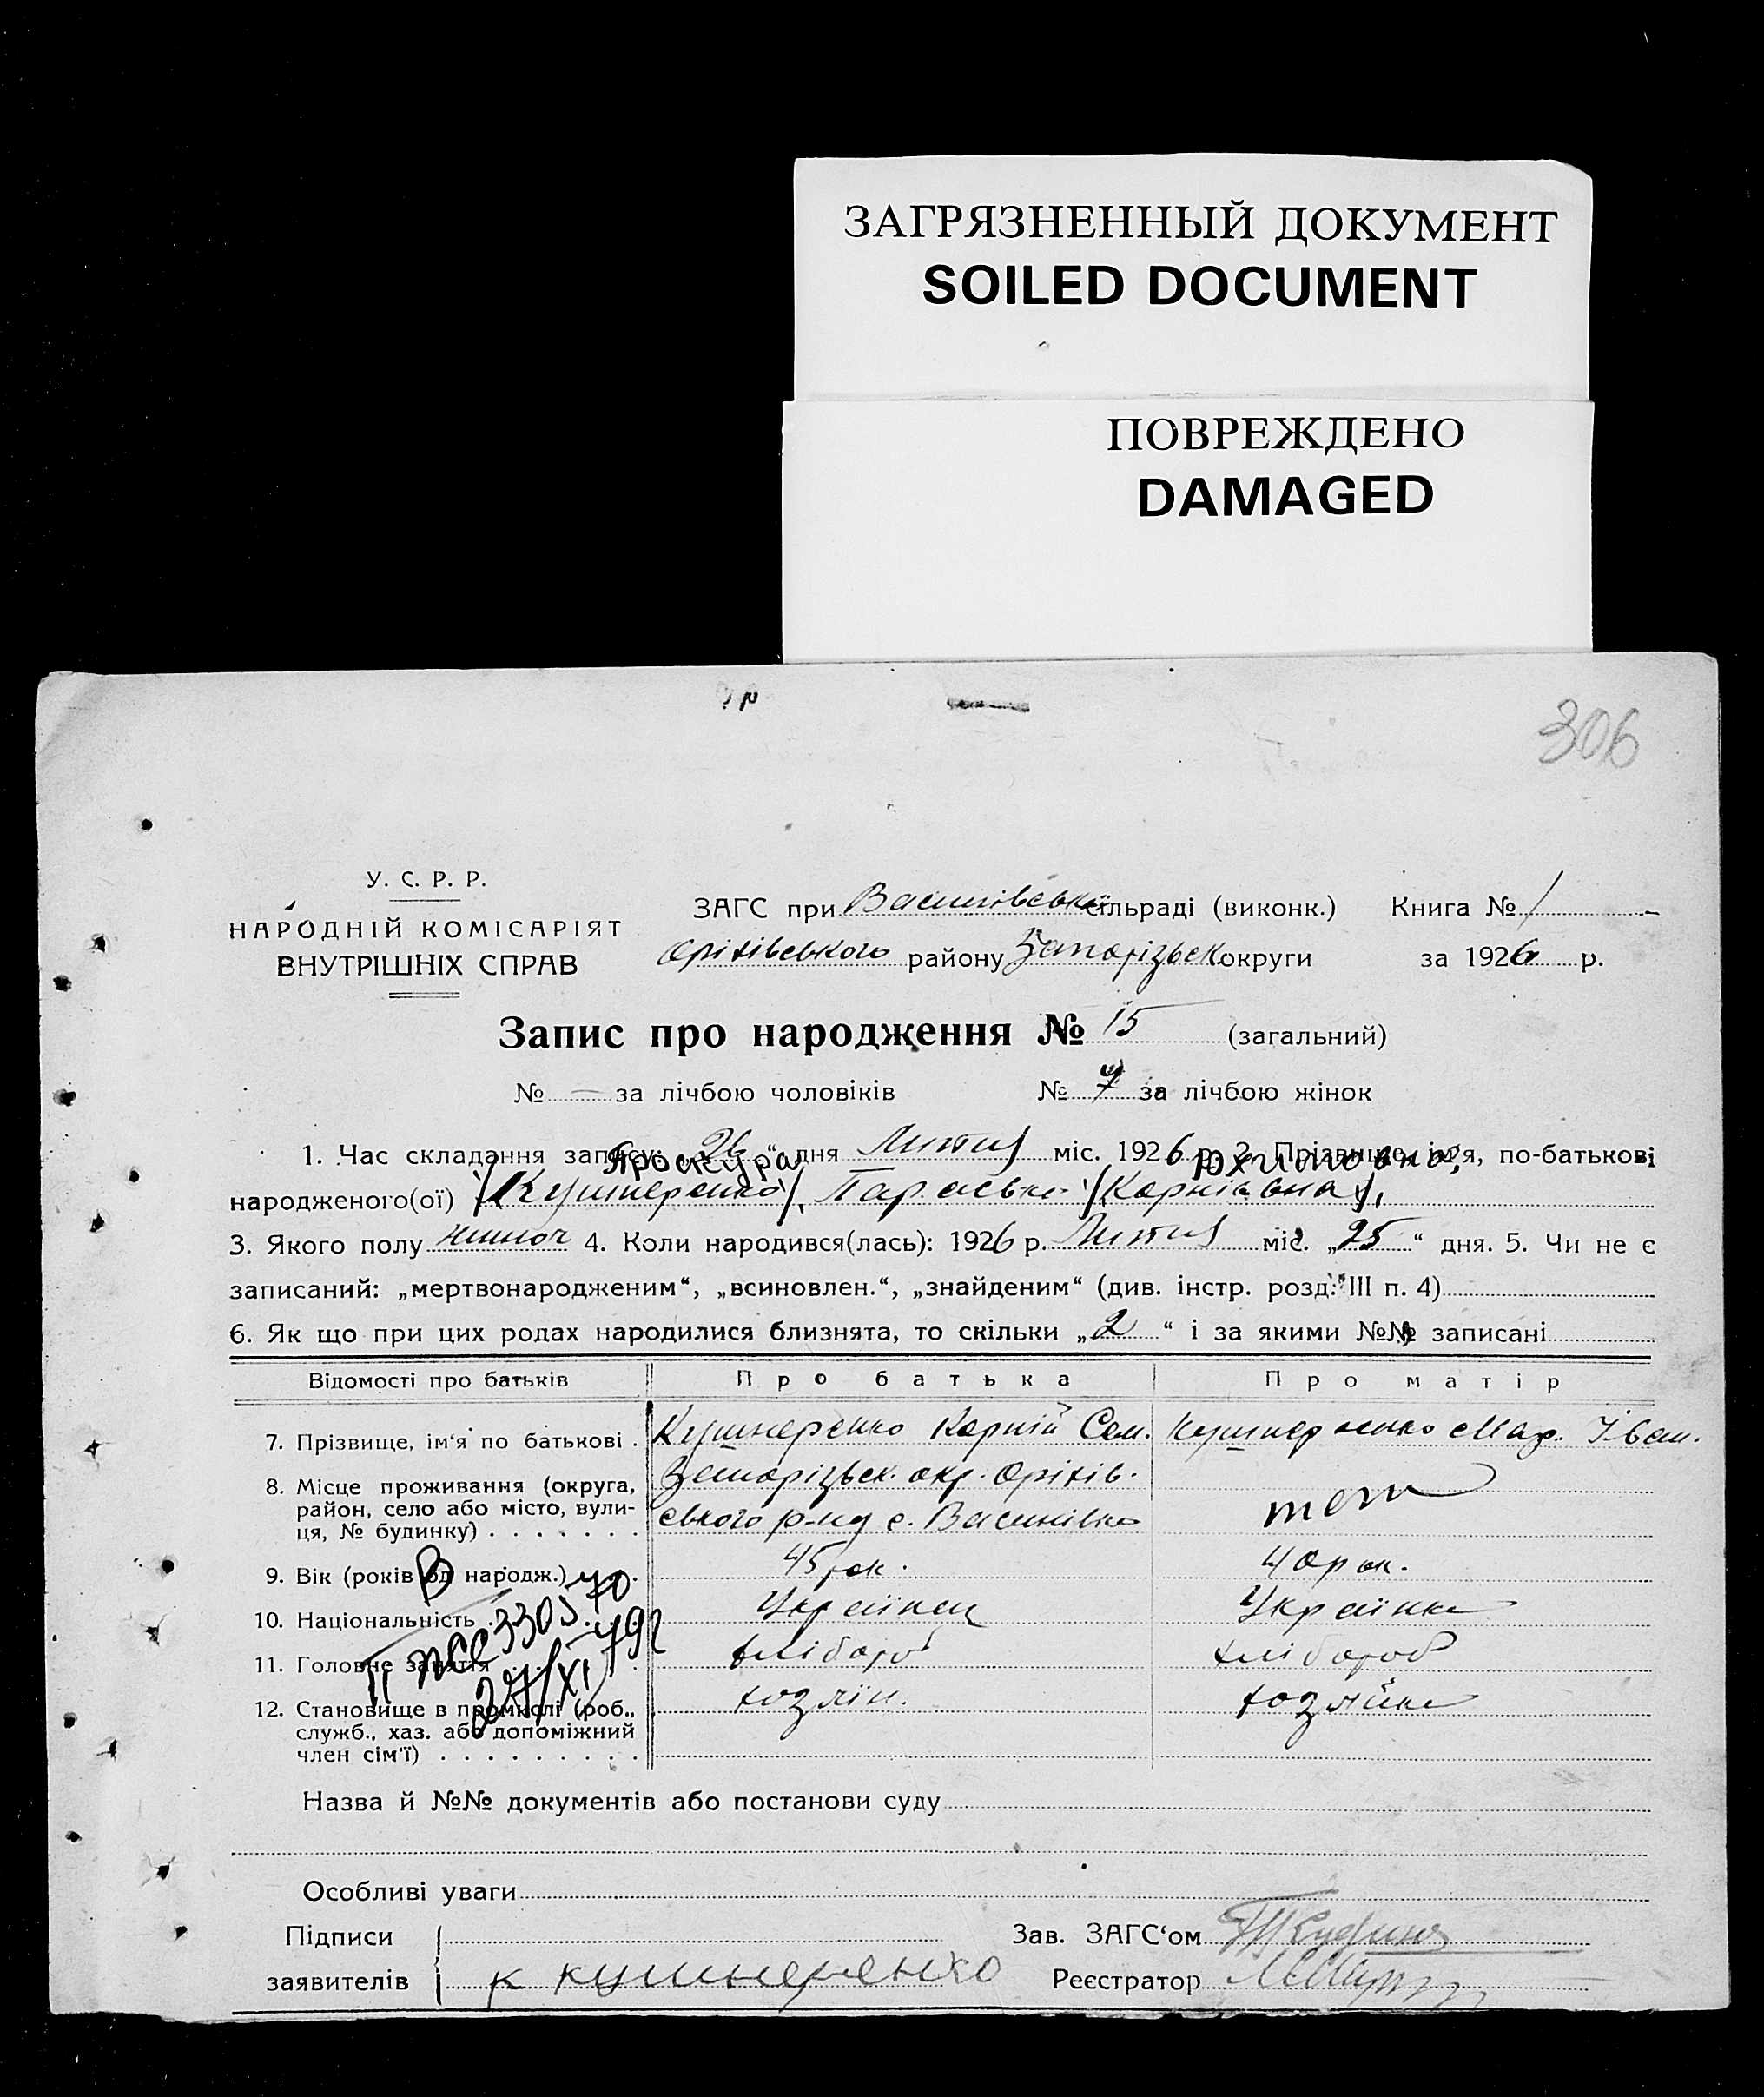 ЗАГРЯЗНЕННЫЙ ДОКУМЕНТ
SOILED DOCUMENT
ПОВРЕЖДЕНО
DAMAGED
306
У. С. Р. Р.
НАРОДНІЙ КОМІСАРІЯТ
ВНУТРІШНІХ СПРАВ
ЗАГС при Васинівській сільраді (виконк.) Книга № 1
Оріхівського району Запорізьск. округи за 1926 р.
Запис про народження № 15 (загальний)
№ — за лічбою чоловіків № 7 за лічбою жінок
1. Час складання запису: „26“ дня Лютня міс. 1926 р. 2. Прізвище, ім'я, по-батькові
Проскура Юхимовна,
народженого(ої) /Кушнеренко/, Параська /Корніївна/,
3. Якого полу жиноч 4. Коли народився(лась): 1926 р. Лютня міс. „25“ дня. 5. Чи не є
записаний: „мертвонародженим“, „всиновлен.“, „знайденим“ (див. інстр. розд. III п. 4)
6. Як що при цих родах народилися близнята, то скільки „2“ і за якими №№ записані
Відомості про батьків Про батька Про матір
7. Прізвище, ім'я по батькові . Кушнеренко Корній Сем. Кушнеренко Мар. Іван.
8. Місце проживання (округа, район, село або місто, вули-
ця, № будинку) . . . . . . . Запорізьск. окр. Оріхів-
ського р-ну с. Васинівка тож
9. Вік (років од народж.) 45 рок. 40 рок.
10. Національність Українец Українка
11. Головне заняття хлібороб хлібороб
12. Становище в промислі (роб., хозяїн. хозяйка
служб., хаз. або допоміжний
член сім'ї) . . . . . . . . .
27/XI
Назва й №№ документів або постанови суду
Особливі уваги
Підписи Зав. ЗАГС'ом
заявителів К Кушнеренко Реєстратор